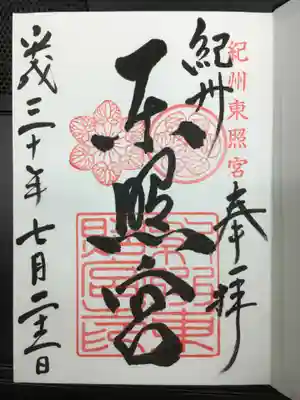 紀州東照宮
奉拝
紀州
東照宮
平成三十年七月二十二日